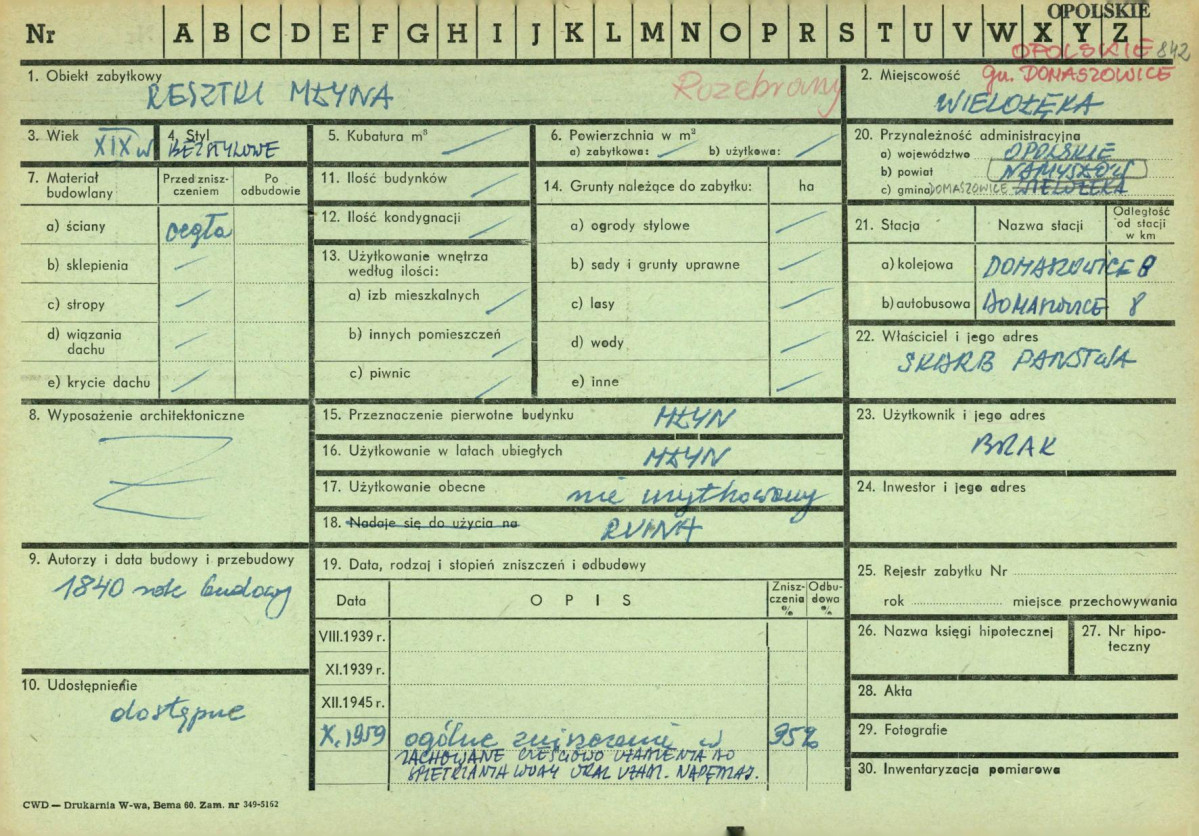 OPOLSKIE
Nr A B C D E F G H I J K L M N O P R S T U V W X Y Z
OPOLSKIE 842
gm. DOMASZOWICE
1. Obiekt zabytkowy
RESZTKI MŁYNA
Rozebrany
2. Miejscowość
WIELOŁĘKA
3. Wiek
XIX w
4. Styl
BEZSTYLOWE
5. Kubatura m³
6. Powierzchnia w m²
a) zabytkowa: b) użytkowa:
20. Przynależność administracyjna
a) województwo OPOLSKIE
b) powiat NAMYSŁÓW
c) gmina DOMASZOWICE WIELOŁĘKA
7. Materiał budowlany
Przed zniszczeniem
Po odbudowie
a) ściany cegła
b) sklepienia
c) stropy
d) wiązania dachu
e) krycie dachu
11. Ilość budynków
12. Ilość kondygnacji
13. Użytkowanie wnętrza według ilości:
a) izb mieszkalnych
b) innych pomieszczeń
c) piwnic
14. Grunty należące do zabytku: ha
a) ogrody stylowe
b) sady i grunty uprawne
c) lasy
d) wody
e) inne
21. Stacja Nazwa stacji Odległość od stacji w km
a) kolejowa DOMASZOWICE 8
b) autobusowa DOMASZOWICE 8
22. Właściciel i jego adres
SKARB PAŃSTWA
8. Wyposażenie architektoniczne
15. Przeznaczenie pierwotne budynku MŁYN
16. Użytkowanie w latach ubiegłych MŁYN
17. Użytkowanie obecne nie użytkowany
18. Nadaje się do użycia na RUINA
23. Użytkownik i jego adres
BRAK
24. Inwestor i jego adres
9. Autorzy i data budowy i przebudowy
1840 rok budowy
10. Udostępnienie
dostępne
19. Data, rodzaj i stopień zniszczeń i odbudowy
Data OPIS Zniszczenia % Odbudowa %
VIII.1939 r.
XI.1939 r.
XII.1945 r.
X.1959 ogólne zniszczenie w 95%
ZACHOWANE CZĘŚCIOWO
SPIĘTRZANIA WODY ORAZ
25. Rejestr zabytku Nr
rok miejsce przechowywania
26. Nazwa księgi hipotecznej
27. Nr hipoteczny
28. Akta
29. Fotografie
30. Inwentaryzacja pomiarowa
CWD — Drukarnia W-wa, Bema 60. Zam. nr 349-5162